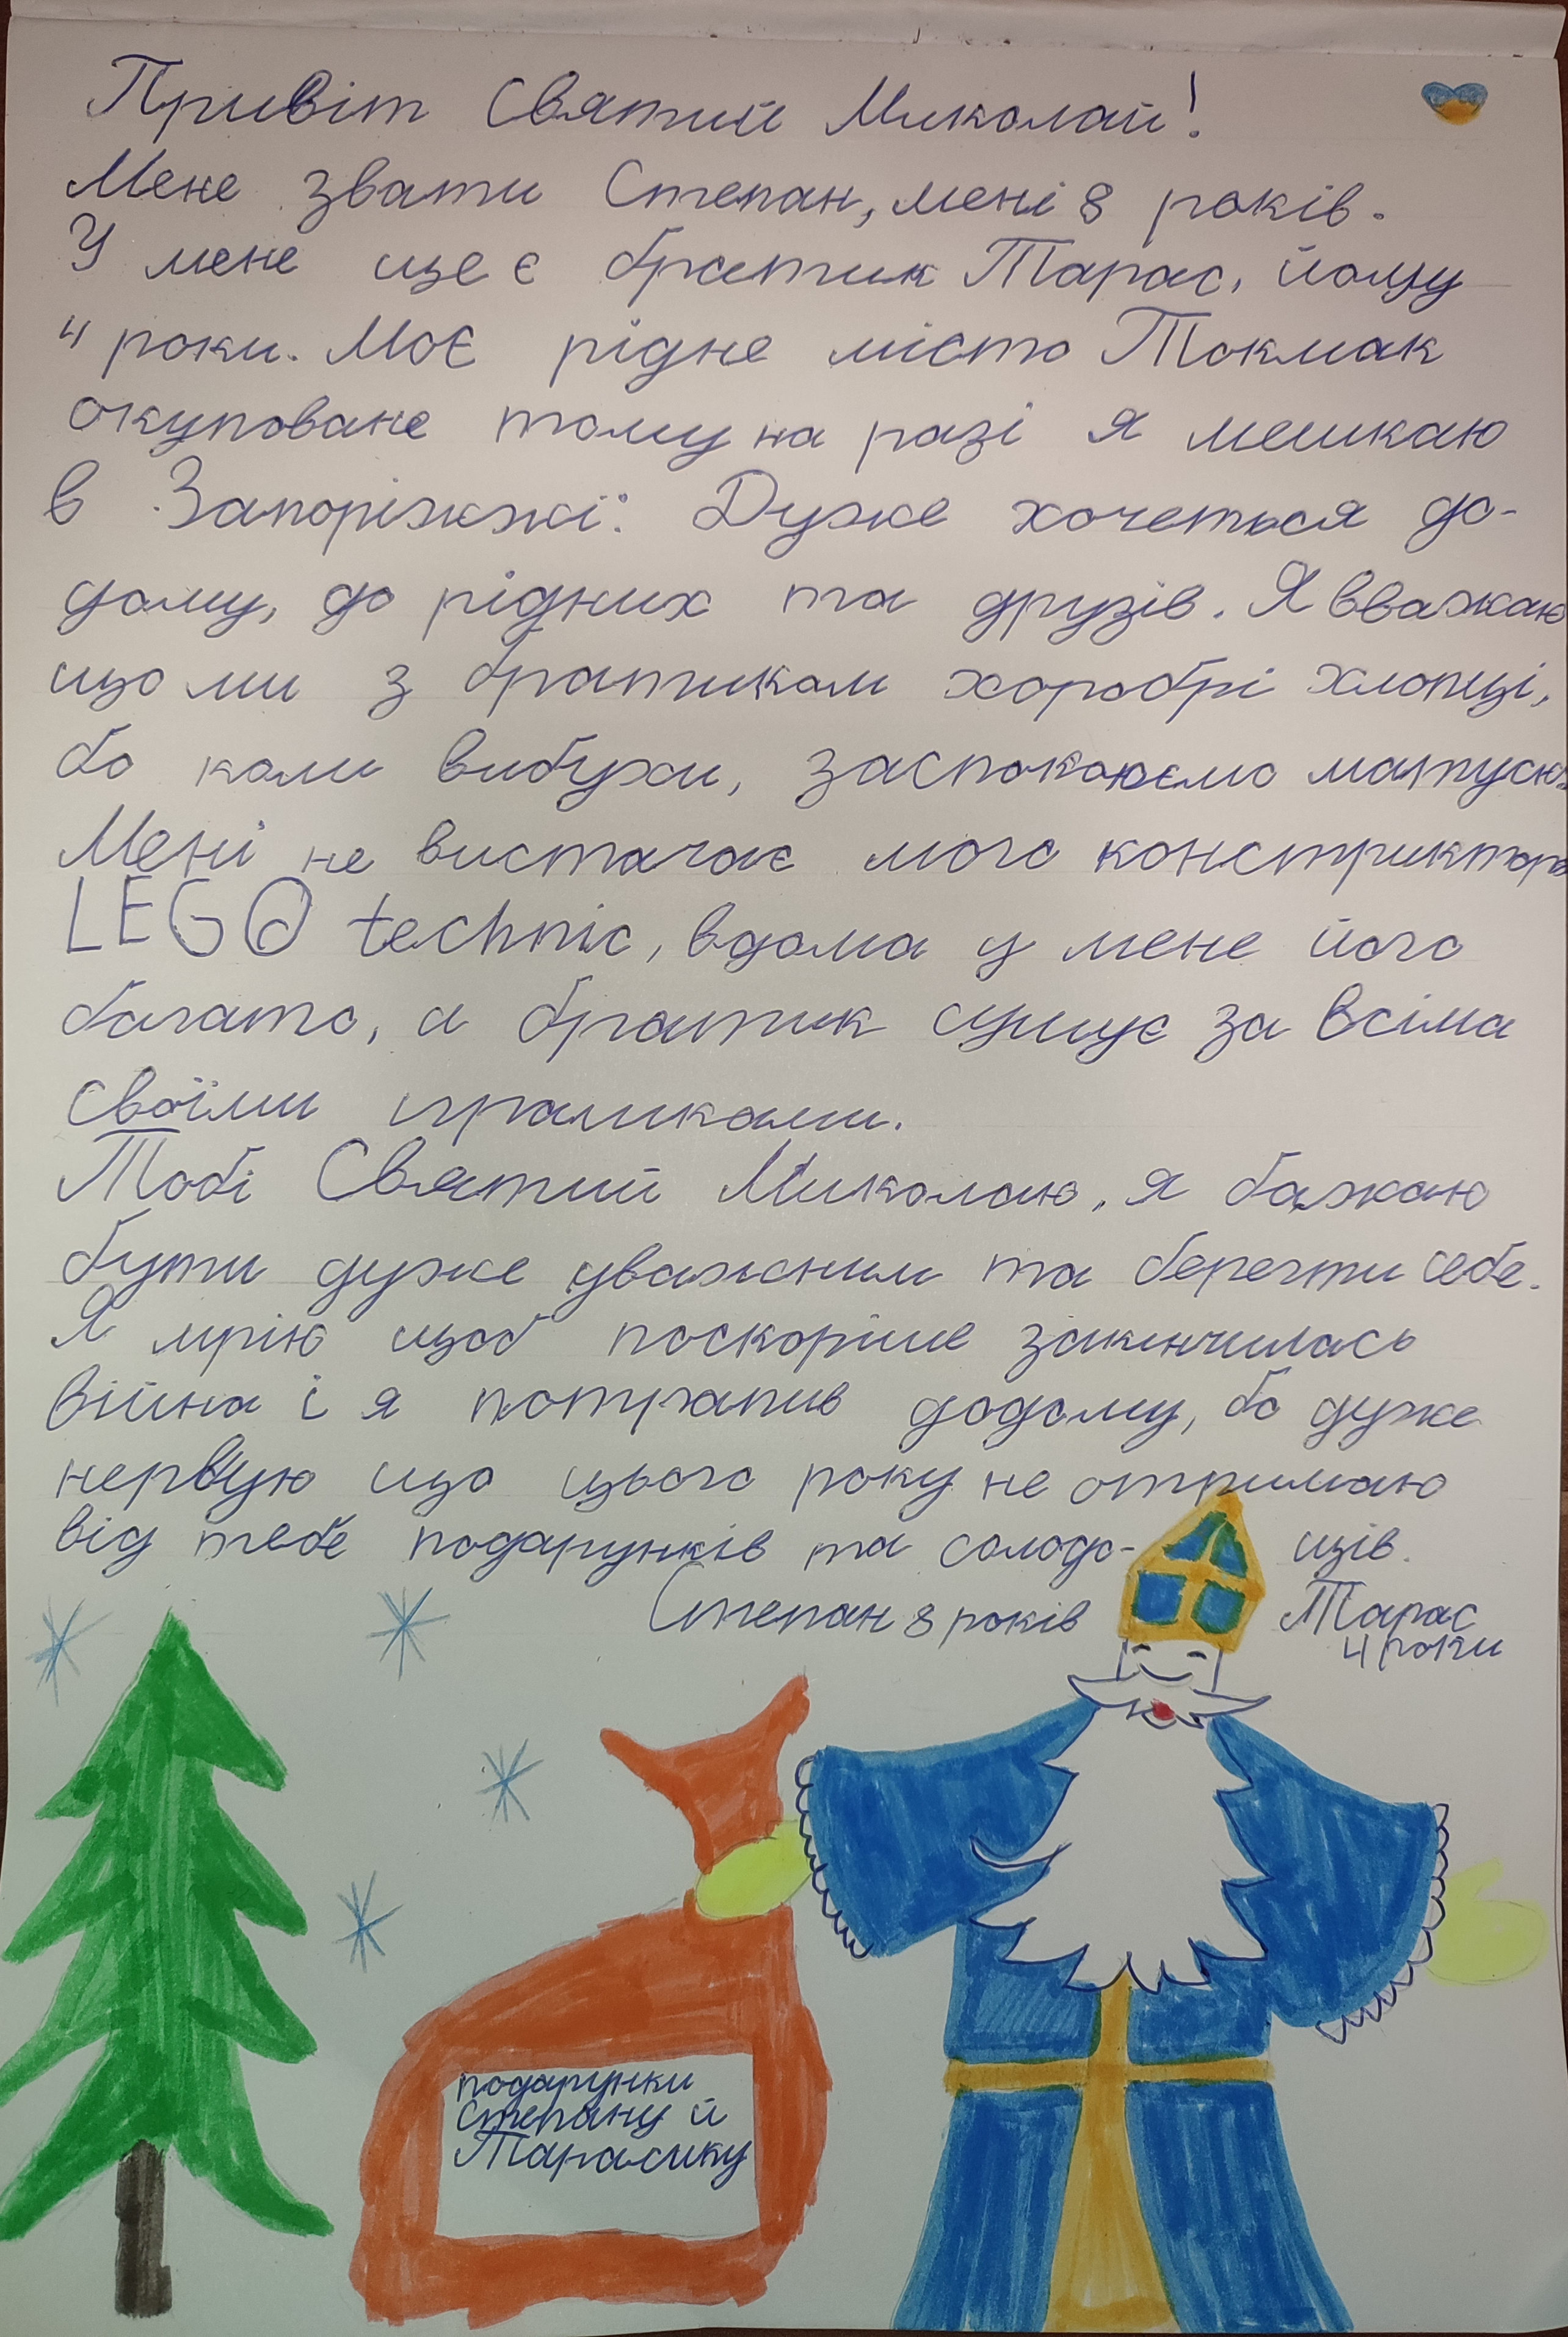 Привіт Святий Миколай!
Мене звати Степан, мені 8 років.
У мене ще є братик Тарас, йому
4 роки. Моє рідне місто Токмак
окуповане тому на разі я мешкаю
в Запоріжжі. Дуже хочеться до-
дому, до рідних та друзів. Я вважаю
що ми з братиком хоробрі хлопці,
бо коли вибухи, заспокоюємо матусю.
Мені не вистачає мого конструктора
LEGO technic, вдома у мене його
багато, а братик сумує за всіма
своїми іграшками.
Тобі Святий Миколаю, я бажаю
бути дуже уважним та берегти себе.
Я мрію щоб поскоріше закінчилась
війна і я потрапив додому, бо дуже
нервую що цього року не отримаю
від тебе подарунків та солодо- щів.
Степан 8 років Тарас
4 роки
подарунки
Степану й
Тарасику